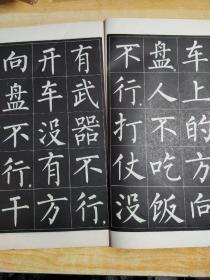 车上的方向
盘.人不吃饭
不行.打仗没
有武器不行.
开车没有方
向盘不行.干